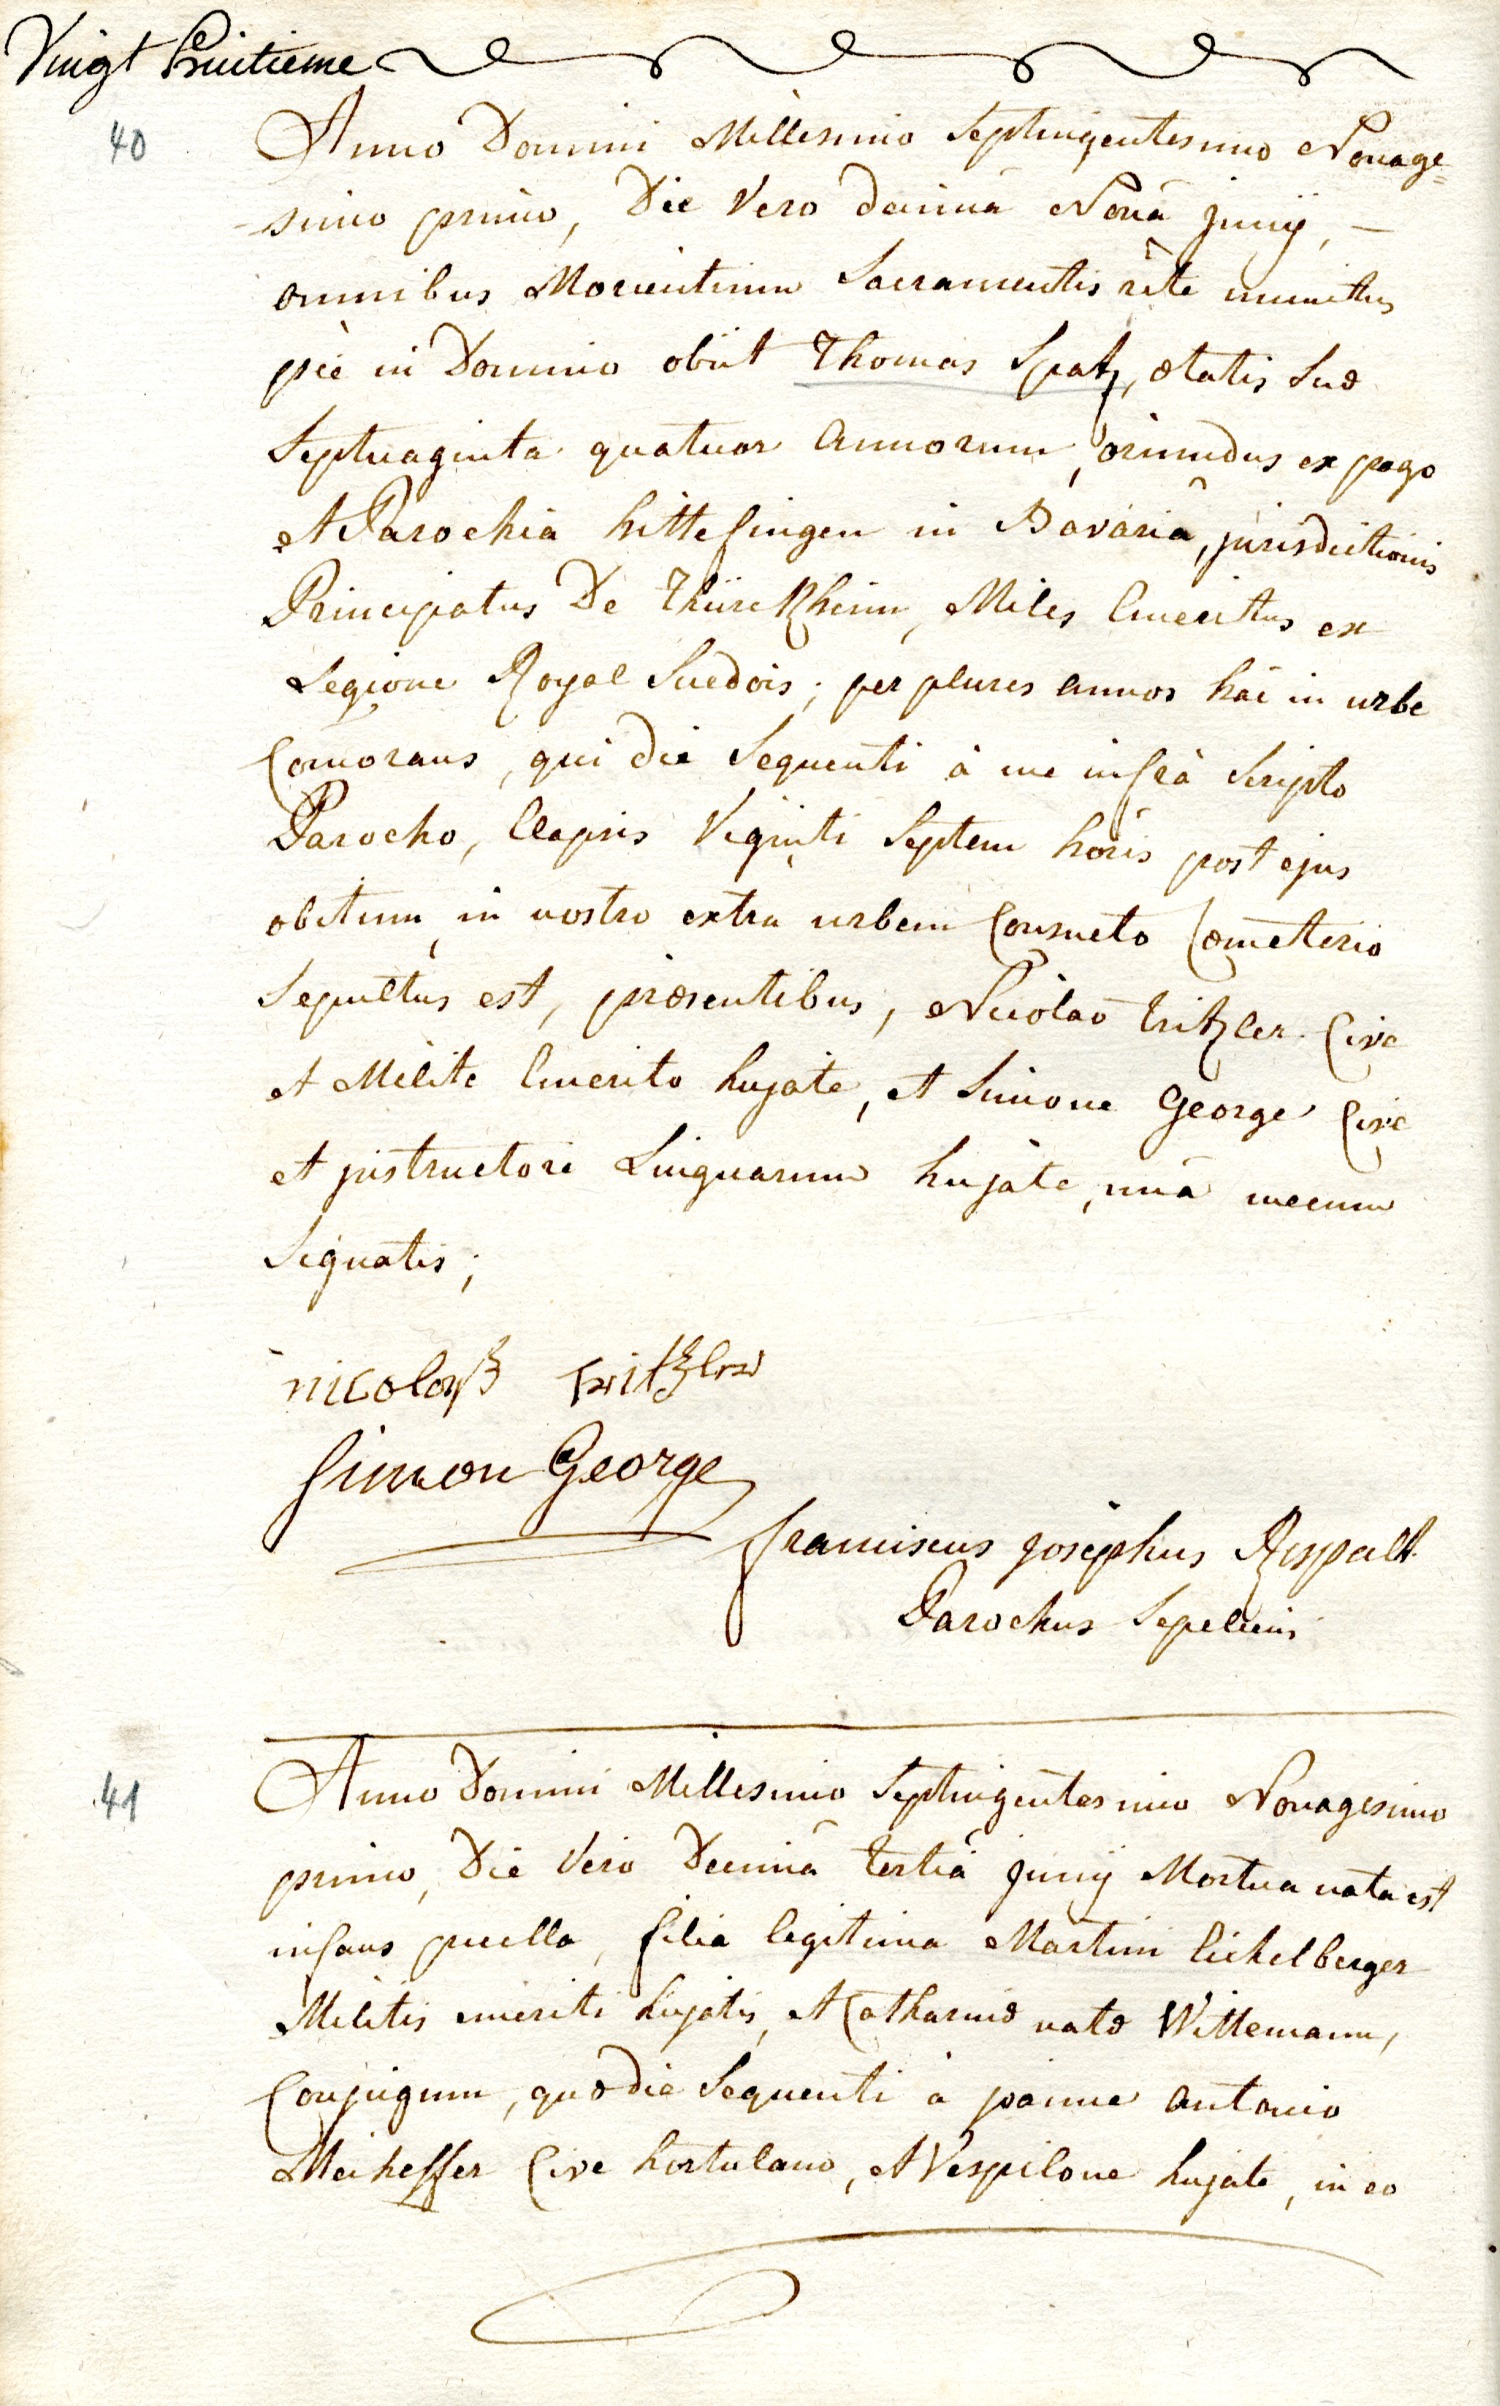 Vingt huitieme
40
Anno Domini Millesimo Septingentesimo Nonage=
-simo primo, Die Vero decimâ Nonâ junij, —
omnibus Morientium Sacramentis rite munitus
piè in Domino obiit Thomas Spatz, ætatis suæ
Septuaginta quatuor annorum, oriundus ex pago
et Parochia hittesingen in Bavariâ, jurisdictionis
Principatus De Thürckheim, Miles Emeritus ex
Legione Royal Suedois; per plures annos hâc in urbe
Comorans, qui die Sequenti à me infrà Scripto
Parocho, Elapsis Viginti Septem horis post ejus
obitum, in nostro extra urbem Consueto Cœmeterio
Sepultus est, præsentibus, Nicolao tritzler Cive
et Milite Emerito hujate, et Simone George Cive
et jnstructore Linguarum hujate, unà mecum
Signatis;
nicolaß tritzler
Simon George
franciscus josephus Rispalt
Parochus Sepeliens
41
Anno Domini Millesimo Septingentesimo Nonagesimo
primo, Die Vero Decimâ tertiâ junij Mortua nata est
infans puella, filia legitima Martini Eichelberger
Militis emeriti hujatis, et Catharinæ natæ Wittemann,
Conjugum, quæ die Sequenti à joanne antonio
Meiheffer Cive hortulano, et Vespilone hujate, in eo